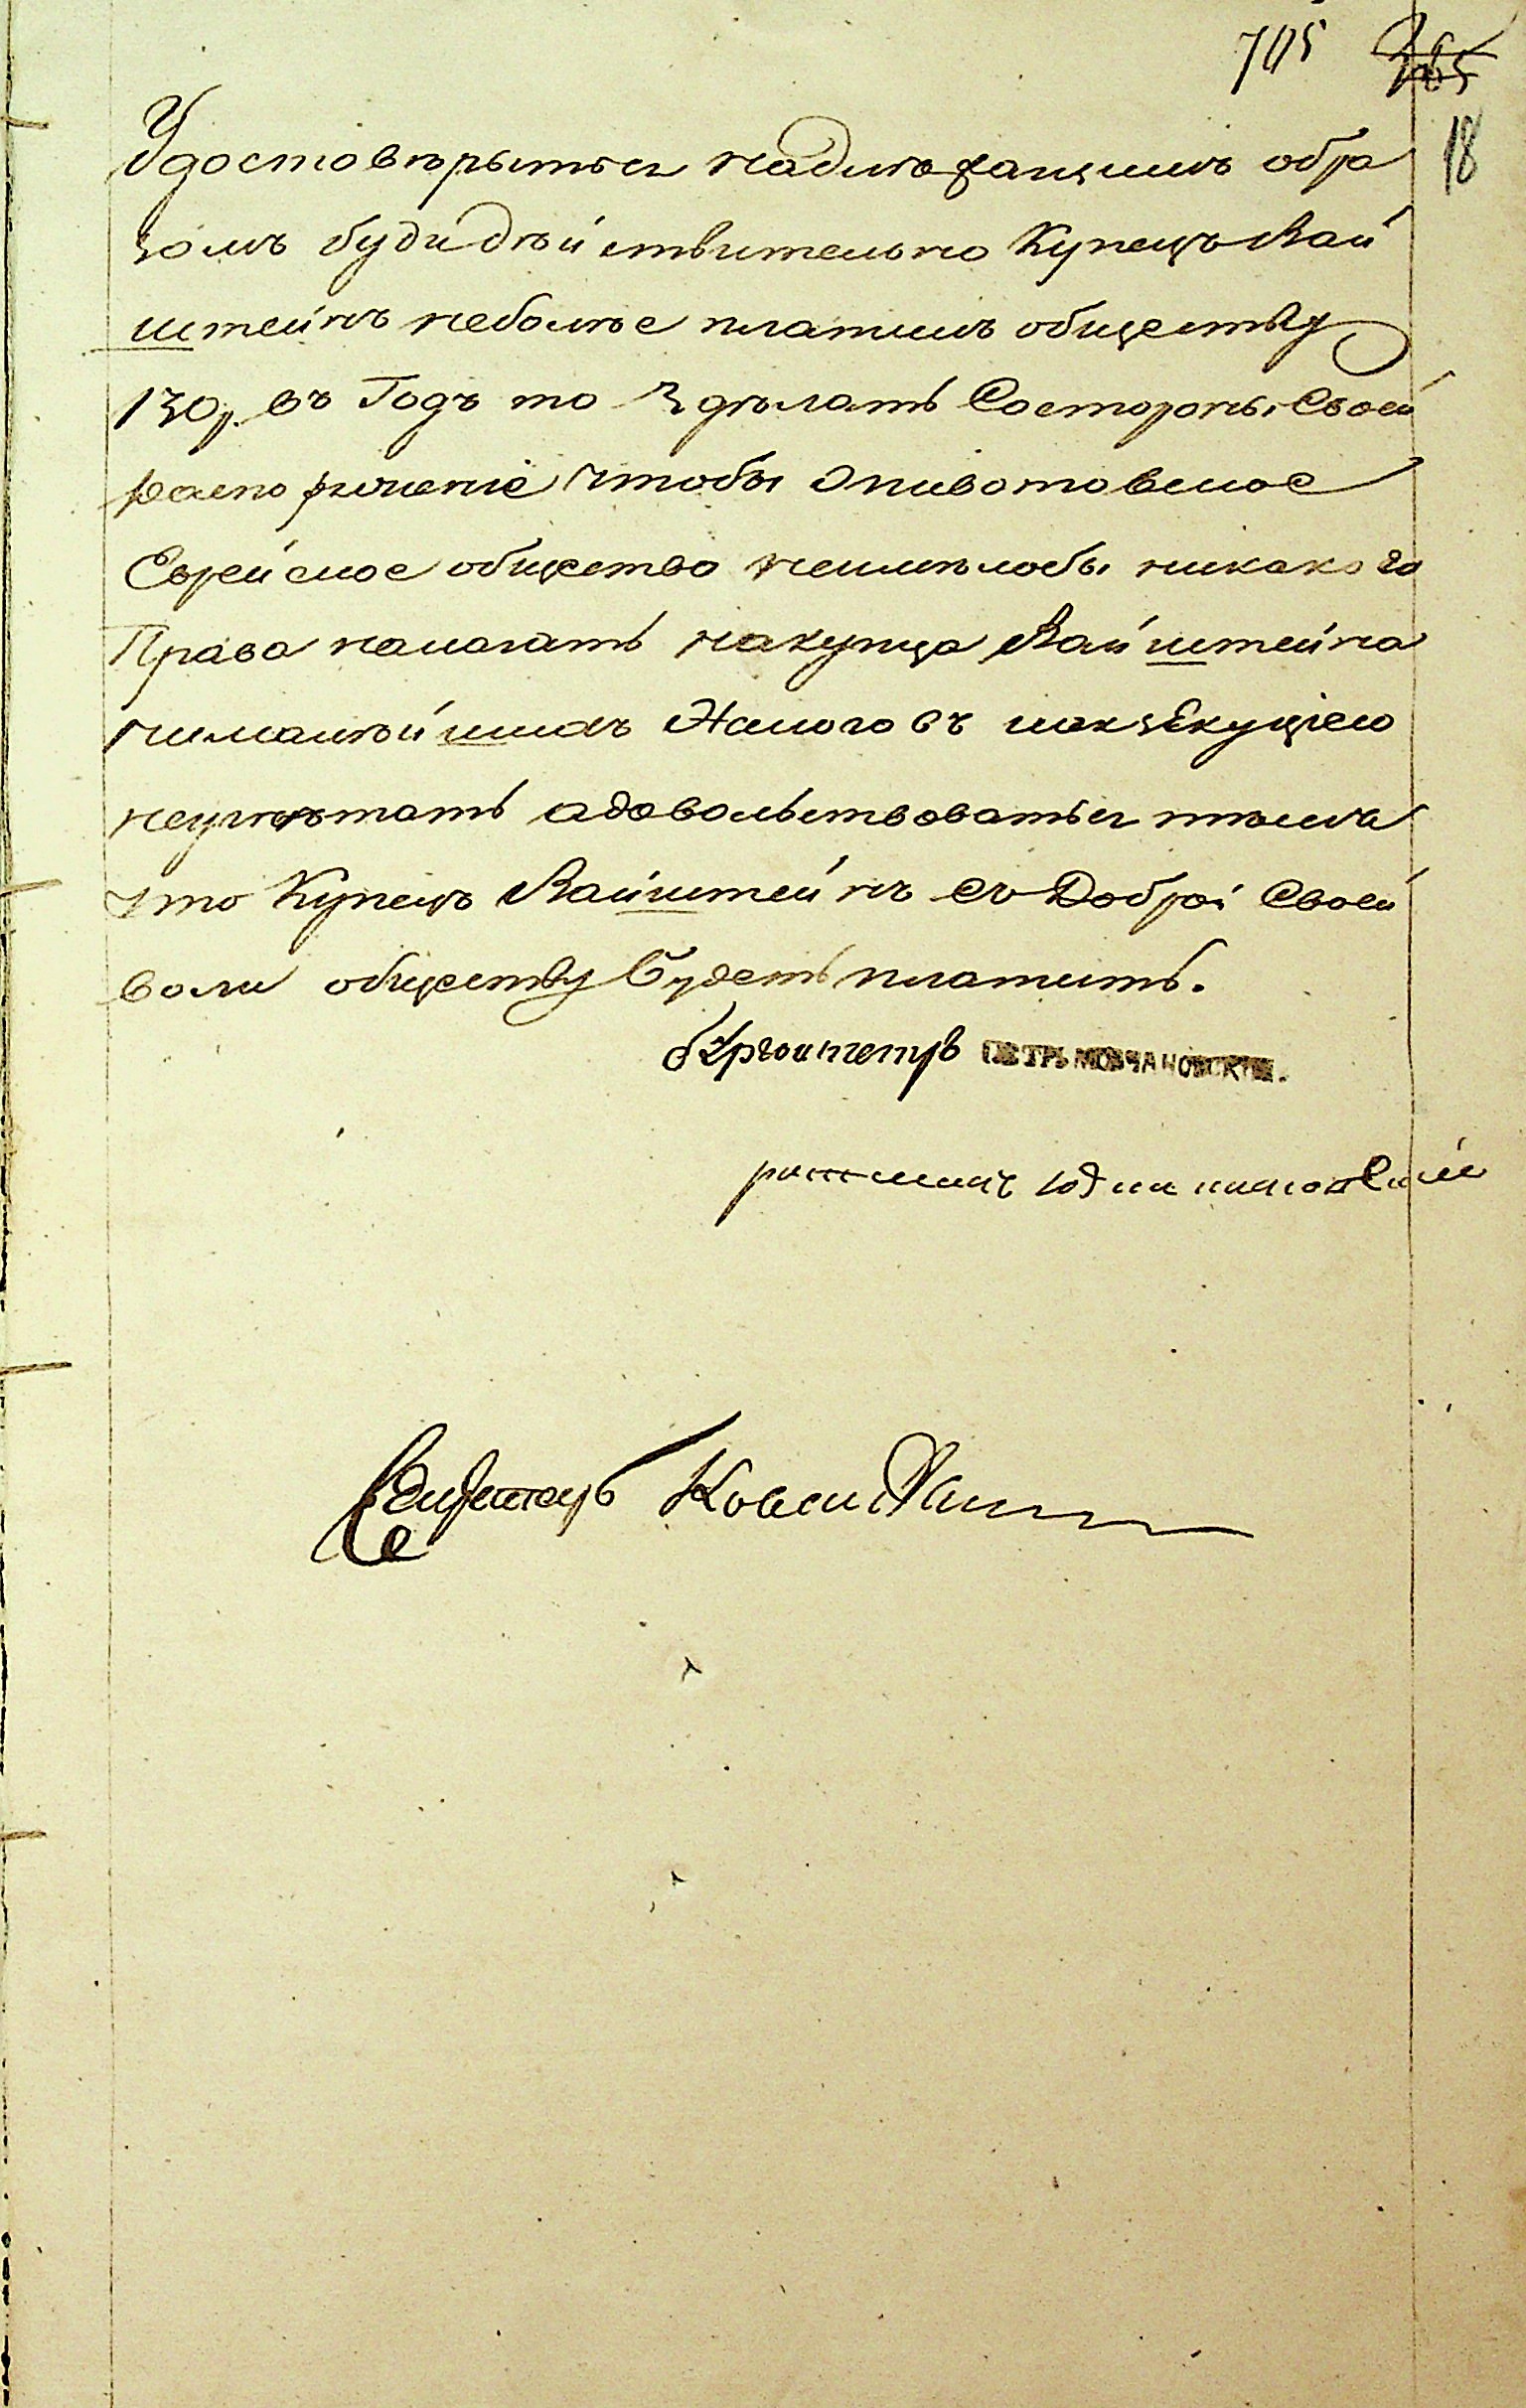 705
18
Удостовѣрытьсн надлѣжащимъ обра
зомъ буди дѣйствительно Купецъ Вай
штейнъ неболѣе платилъ обществу
130 р. въ Годъ то Здѣлать Состороны Своей
распоряженіе чтобы
Еврейское общество неимѣлобы никакого
Права налагать накупца Вайштейна
ималѣйшихъ Налоговъ иекзекуціею
неугнѣтать адовольствоватьсн тѣмъ
что Купецъ Вайнштейнъ съ Доброй Своей
воли обществу будетъ платить.
Бургомистръ ПЕТРЪ МОВЧАНОВСКІЙ.
ратманъ
Секретарь